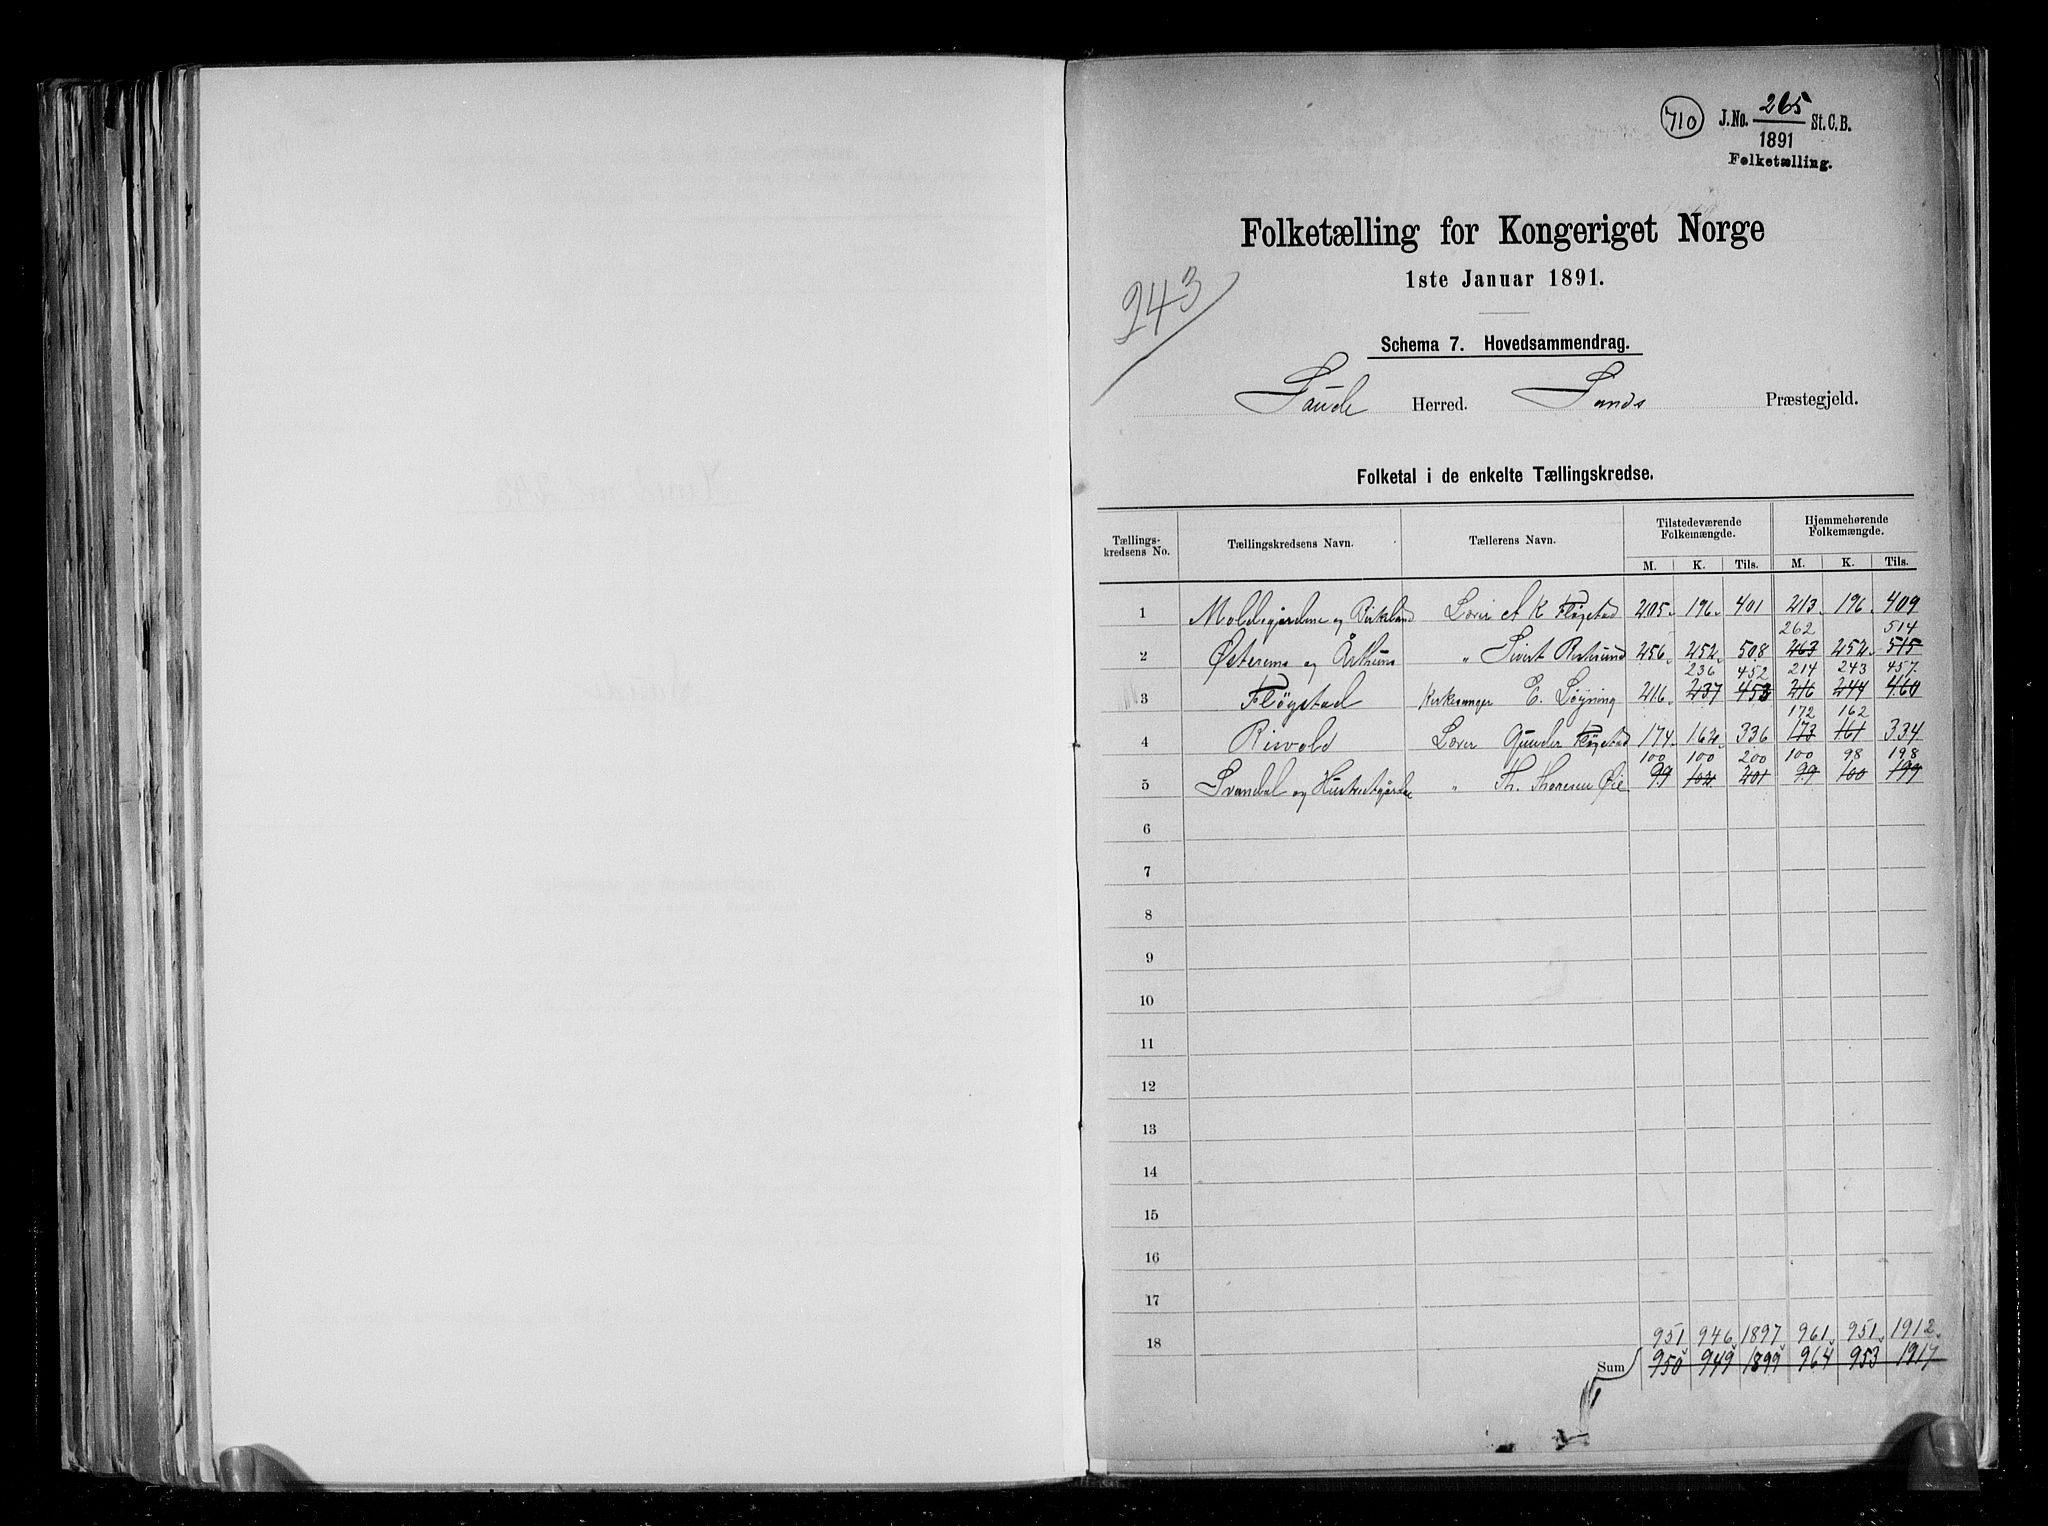 710 J.No. 265 St.C.B.
1891
Folketælling.
Folketælling for Kongeriget Norge
1ste Januar 1891.
243
Schema 7. Hovedsammendrag.
Saude Herred. Sands Præstegjeld.
Folketal i de enkelte Tællingskredse.
Tællingskredsens No. Tællingskredsens Navn. Tællerens Navn. Tilstedeværende Folkemængde. Hjemmehørende Folkemængde.
M. K. Tils. M. K. Tils.
1 Moldegårdene og Birkeland Lærer A K Fløgstad 205 196 401 213 196 409
262 514
2 Østerems og Årthuns " Sivert 256 252 508 263 252 515
236 452 214 243 457
3 Fløgstad Kirkesanger E. Løyning 216 237 453 216 244 460
172 162
4 Risvold Lærer Gunder Fløgstad 174 162 336 173 161 334
100 100 200 100 98 198
5 Svandal og Hustveitgårdene " Th. Thoresen Øie 99 102 201 99 100 199
6
7
8
9
10
11
12
13
14
15
16
17
18
951 946 1897 961 951 1912
Sum 950 949 1899 964 953 1917